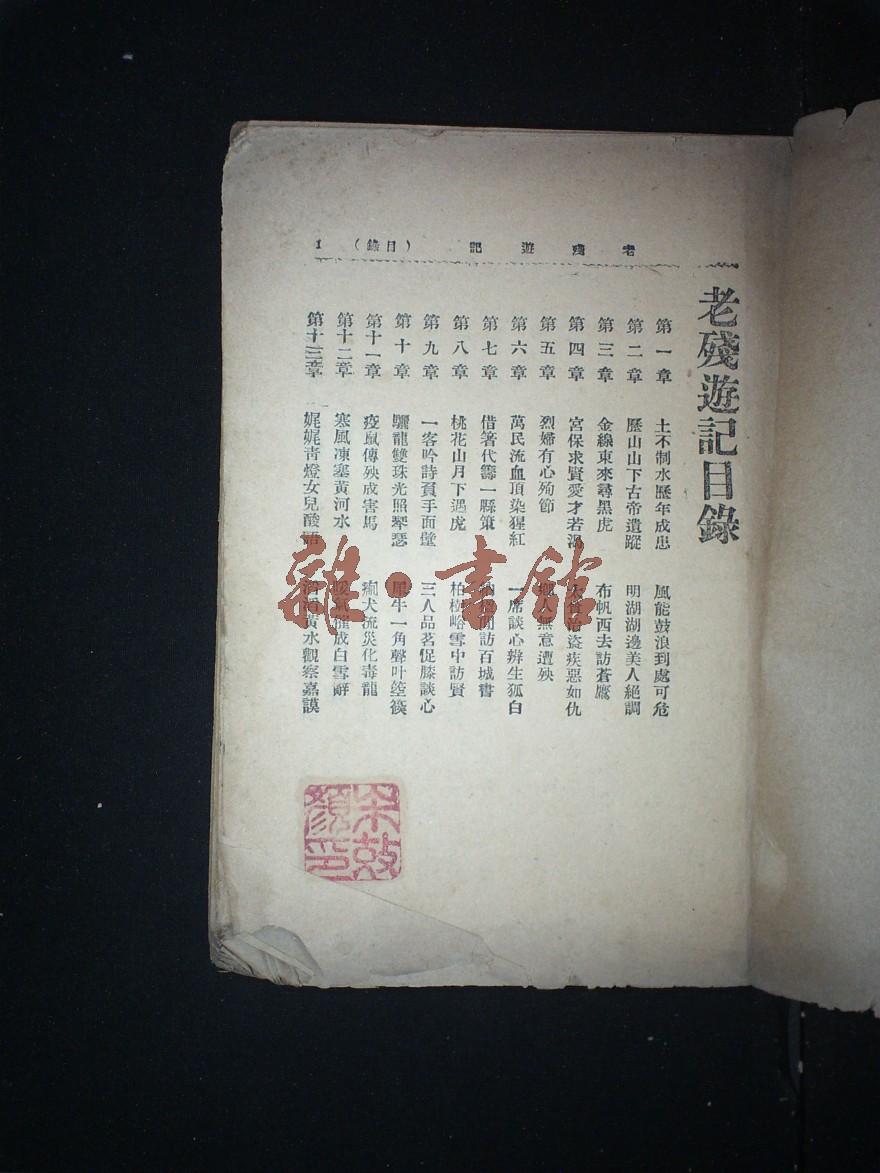 老殘遊記 (目錄) 1
老殘遊記目錄
第一章 土不制水歷年成患 風能鼓浪到處可危
第二章 歷山山下古帝遺蹤 明湖湖邊美人絕調
第三章 金線東來尋黑虎 布帆西去訪蒼鷹
第四章 宮保求賢愛才若渴 治盜疾惡如仇
第五章 烈婦有心殉節 鄉人無意遭殃
第六章 萬民流血頂染猩紅 一席談心辨生狐白
第七章 借箸代籌一縣策 訪百城書
第八章 桃花山月下遇虎 柏樹峪雪中訪賢
第九章 一客吟詩負手面壁 三人品茗促膝談心
第十章 驪龍雙珠光照琴瑟 犀牛一角聲叶箜篌
第十一章 疫鼠傳殃成害馬 瘈犬流災化毒龍
第十二章 寒風凍塞黃河水 暖氣催成白雪辭
第十三章 娓娓青燈女兒酸語 滔滔黃水觀察嘉謨
雜·書館